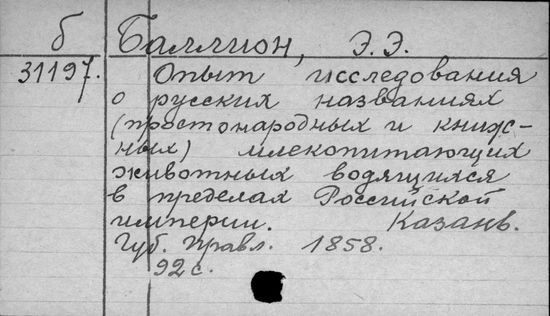 б Баллион, Э.Э.
31197. Опыт исследования
о русских названиях
(простонародных и книж-
ных) млекопитающих
животных водящихся
в пределах Российской
империи. Казань.
Губ. Правл. 1858.
92 с.